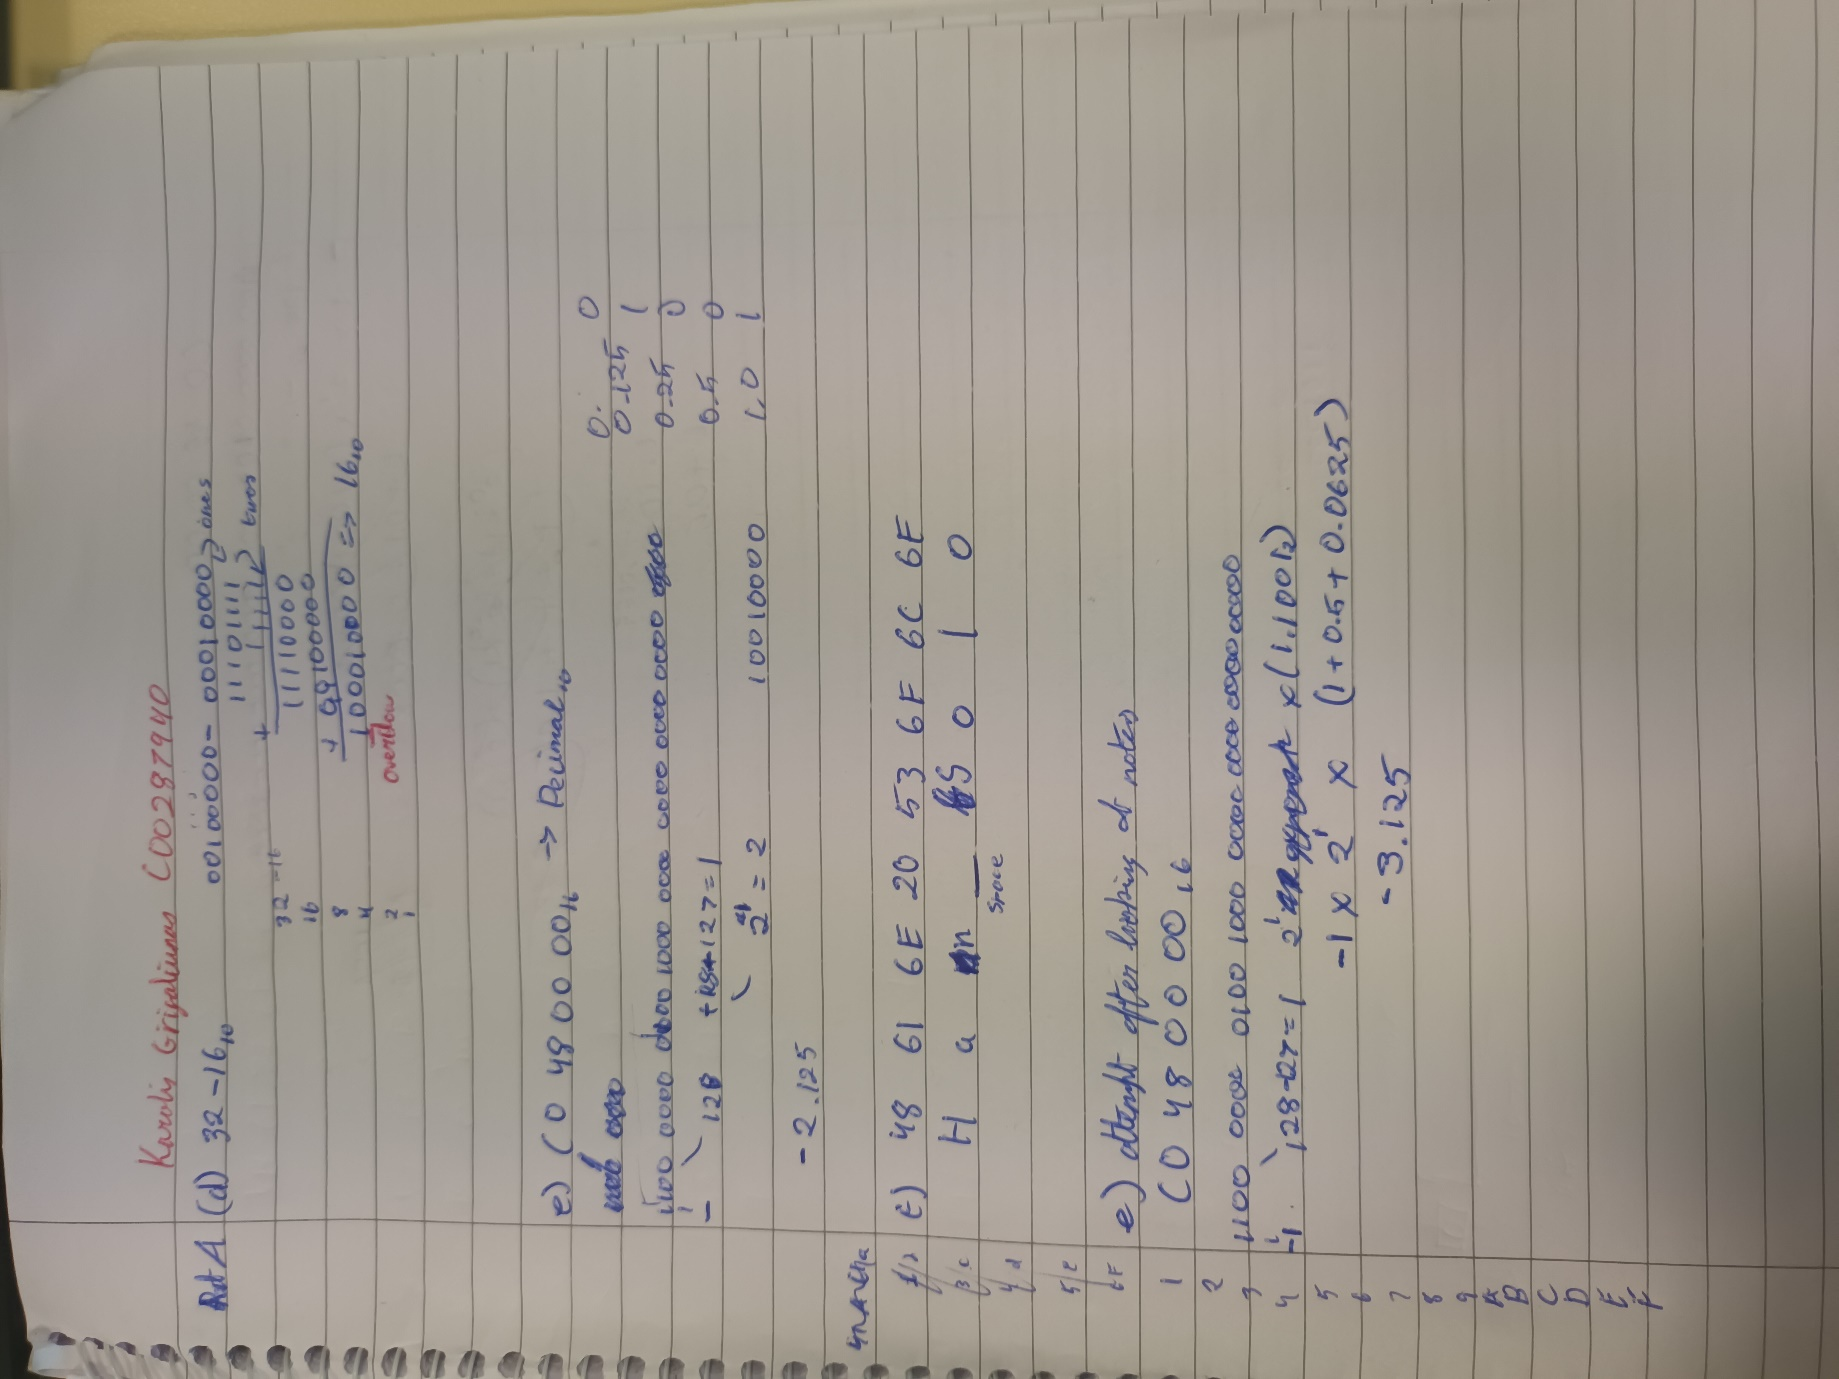 Karolis Grigaliunas C00287940
Part A (d) 32 - 16₁₀
00100000 - 00010000 ones
32 - 16
16
8
4
2
1
11101111
+ 1 twos
11110000
+ 00100000
100010000 => 16₁₀
overflow
e) C0 48 00 00₁₆ -> Decimal₁₀
1100 0000 0100 1000 0000 0000 0000 0000 0000
- 128 127 = 1
2¹ = 2
1001 0000
0. 0
0.125 1
0.25 0
0.5 0
1.0 1
-2.125
f) 48 61 6E 20 53 6F 6F 6C 6F
H a n _ S o l o
space
e) attempt after looking at notes
C0 48 00 00₁₆
1100 0000 0100 1000 0000 0000 0000 0000
-1. 128-127=1 2¹ x (1.1001₂)
-1 x 2¹ x (1 + 0.5 + 0.0625)
-3.125
1
2
3
4
5
6
7
8
9
A
B
C
D
E
F